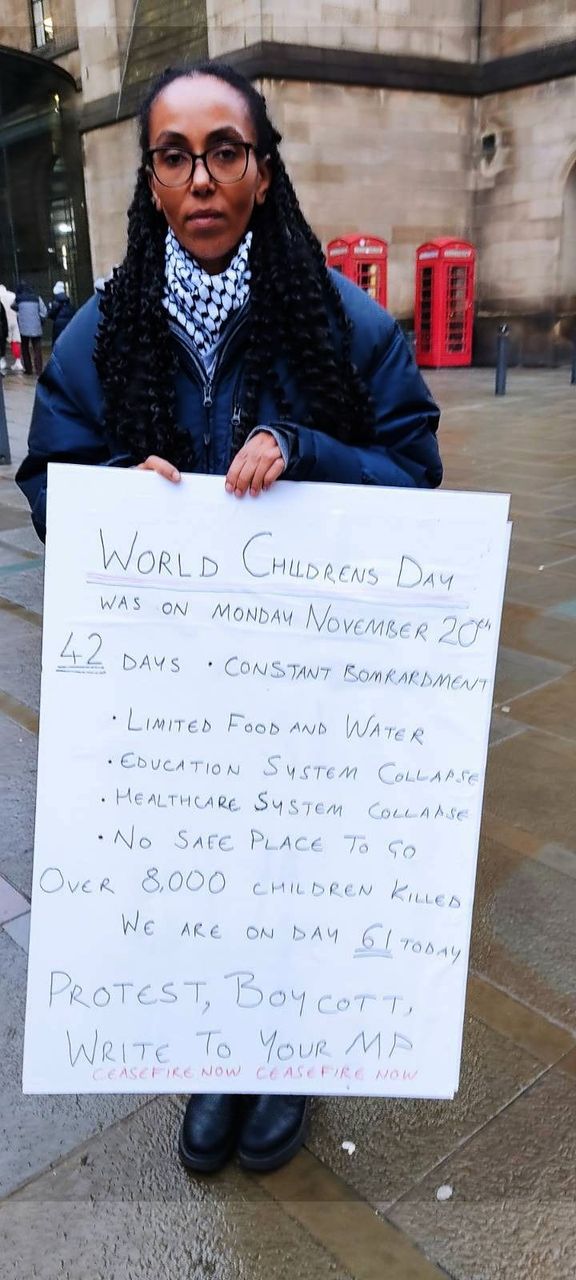 WORLD CHILDRENS DAY
WAS ON MONDAY NOVEMBER 20th
42 DAYS • CONSTANT BOMRARDMENT
• LIMITED FOOD AND WATER
• EDUCATION SYSTEM COLLAPSE
• HEALTHCARE SYSTEM COLLAPSE
• NO SAFE PLACE TO GO
OVER 8,000 CHILDREN KILLED
WE ARE ON DAY 61 TODAY
PROTEST, BOYCOTT,
WRITE TO YOUR MP
CEASEFIRE NOW CEASEFIRE NOW